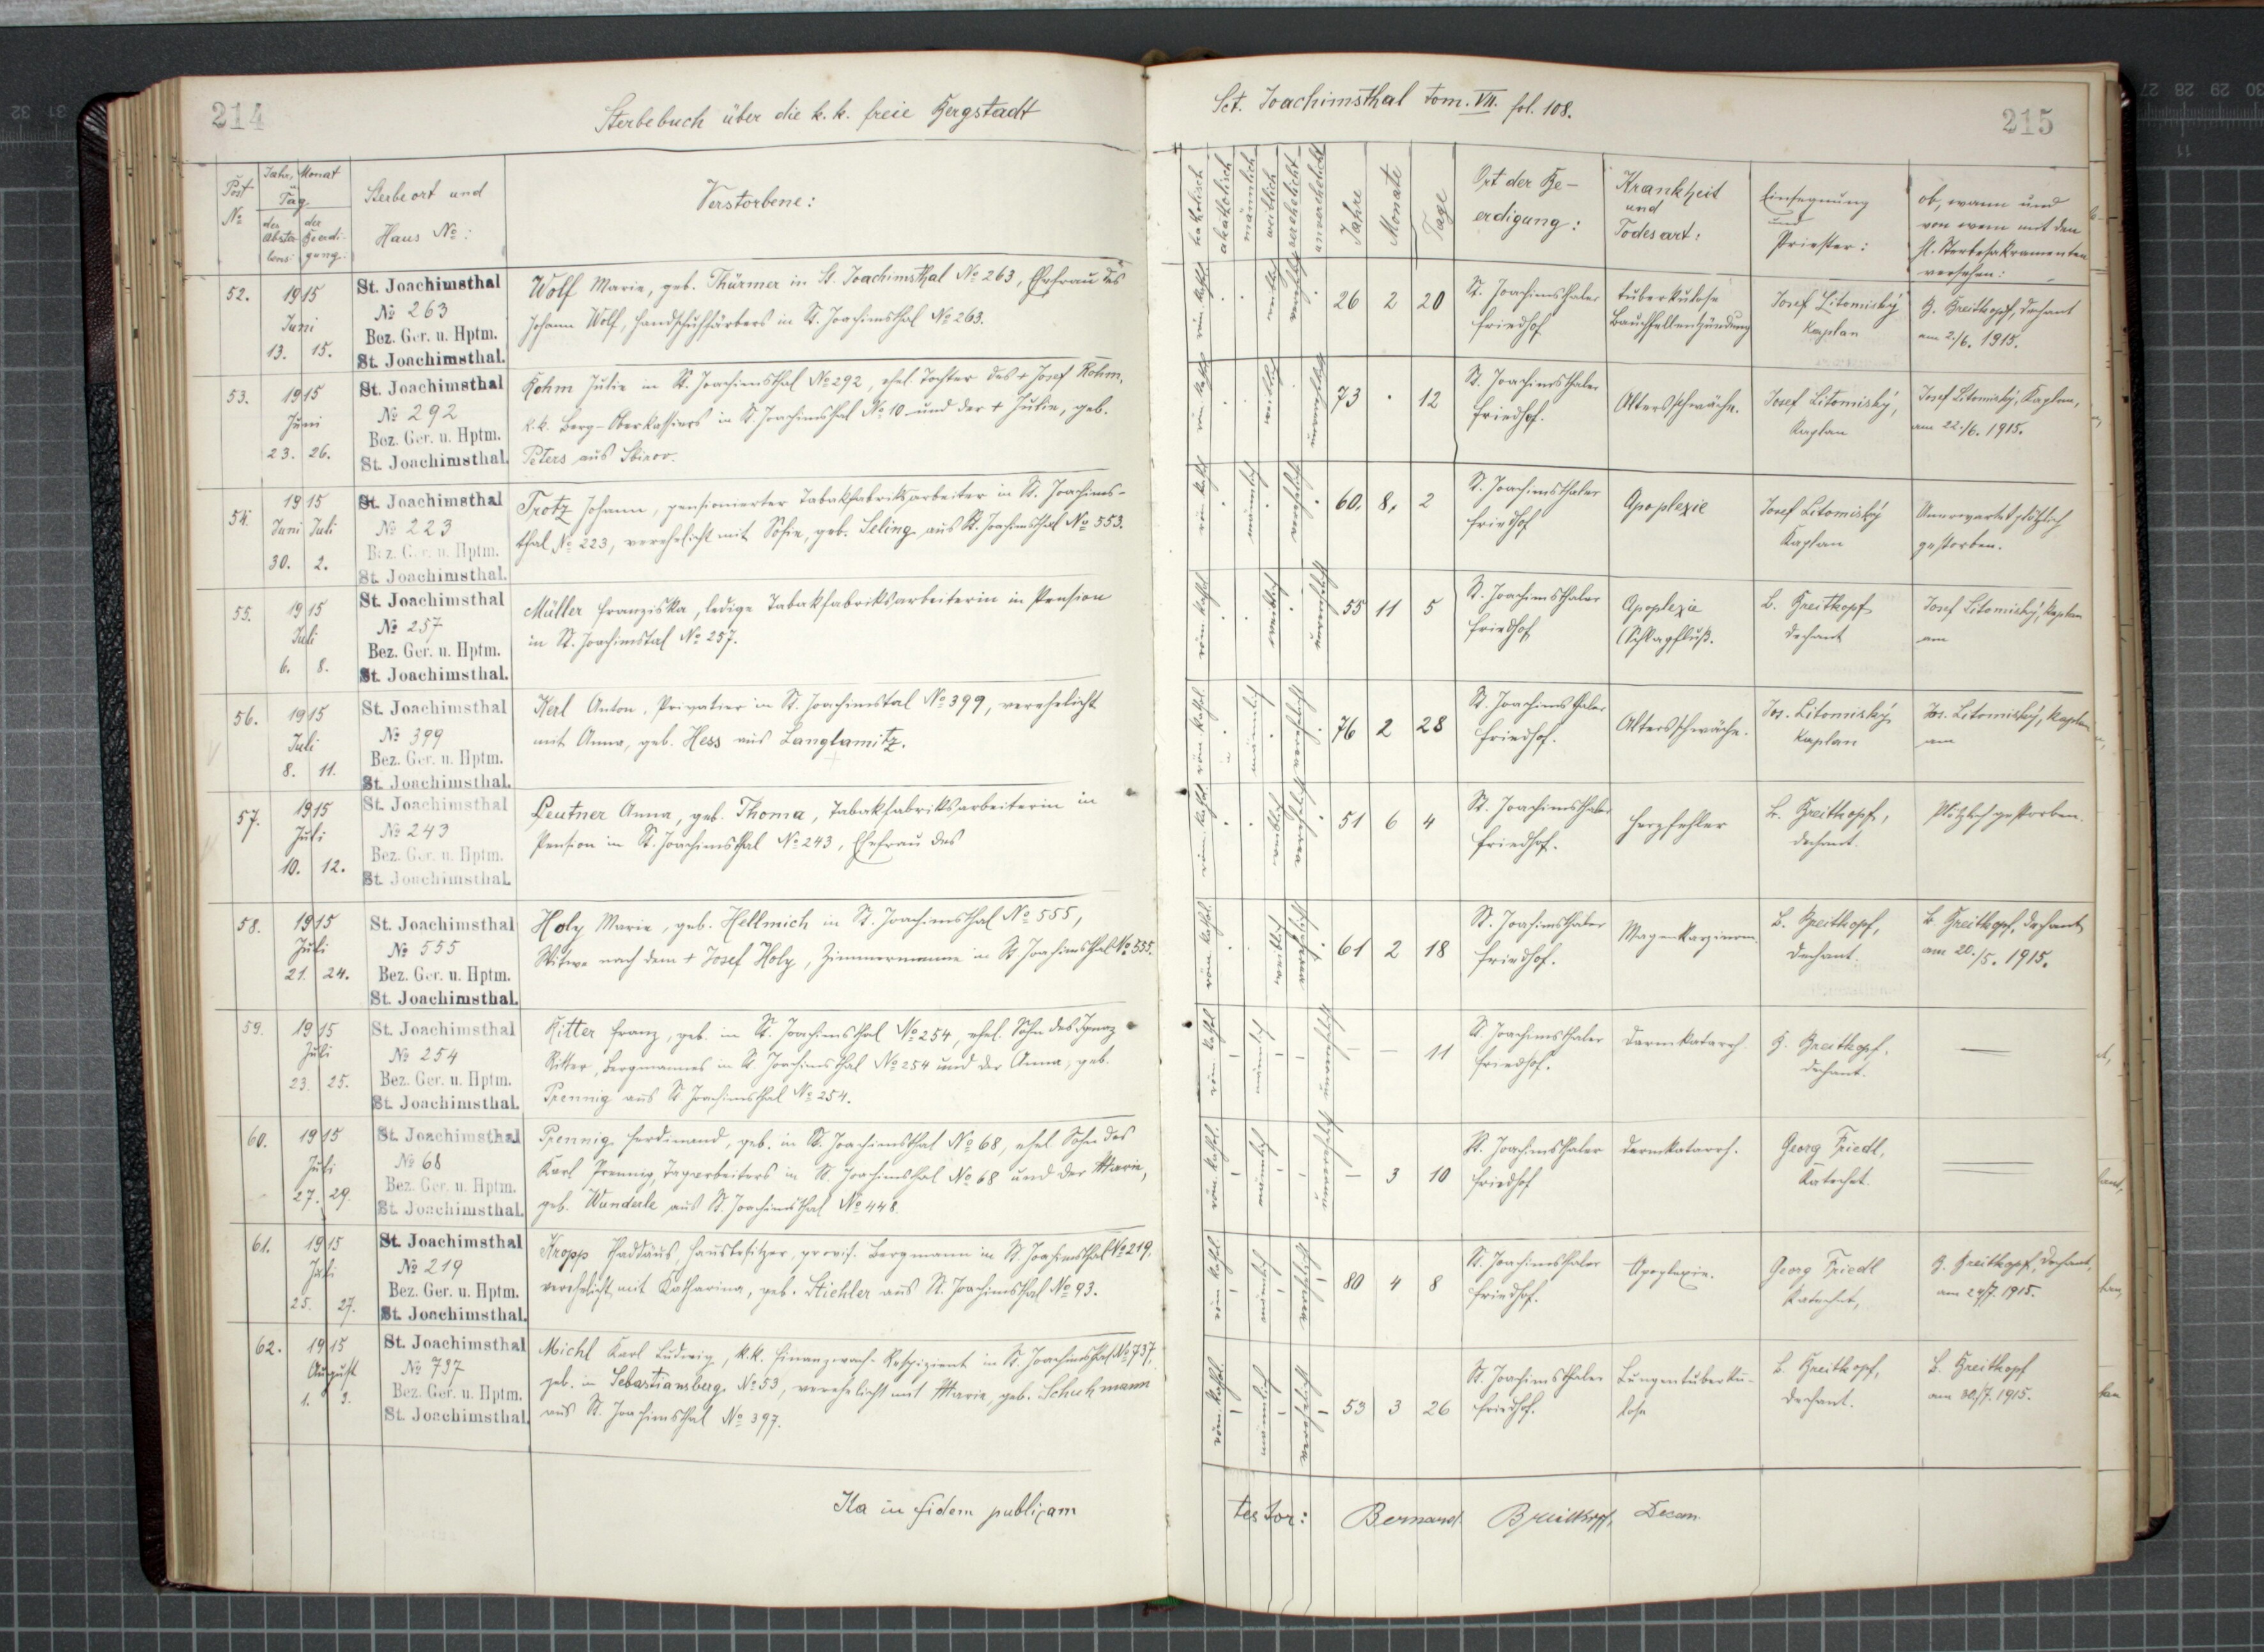 214
Sterbebuch über die k. k. freie Bergstadt
Post
No
Jahr, Monat
u
Tag
des
Abster-
bens:
der
Beerdi-
gung:
Sterbeort und
Haus No:
Verstorbene:
52.
1915
Juni
13. 15.
St. Joachimsthal
No 263
Bez. Ger. u. Hptm.
St. Joachimsthal.
Wolf Marie, geb. Thürmer in St. Joachimsthal No 263, Ehefrau des
Johann Wolf, Handschuhfärbers in St. Joachimsthal No 263.
53.
1915
Juni
23. 26.
St. Joachimsthal
No 292
Bez. Ger. u. Hptm.
St. Joachimsthal.
Böhm Julie in St. Joachimsthal No 292, ehel. Tochter des + Josef Böhm,
k.k. Berg-Oberkassiers in St. Joachimsthal No 10 und der + Julie, geb.
Peters aus Sbirov.
54.
1915
Juni Juli
30. 2.
St. Joachimsthal
No 223
Bez. Ger. u. Hptm.
St. Joachimsthal.
Trotz Johann, pensionierter Tabakfabriksarbeiter in St. Joachims-
thal No 223, verehelicht mit Sofie, geb. Seling aus St. Joachimsthal No 553.
55.
1915
Juli
6. 8.
St. Joachimsthal
No 257
Bez. Ger. u. Hptm.
St. Joachimsthal.
Müller Franziska, ledige Tabakfabriksarbeiterin in Pension
in St. Joachimstal No 257.
56.
1915
Juli
8. 11.
St. Joachimsthal
No 399
Bez. Ger. u. Hptm.
St. Joachimsthal.
Kerl Anton, Privatier in St. Joachimstal No 399, verehelicht
mit Anna, geb. Hess aus Langlamitz.
57.
1915
Juli
10. 12.
St. Joachimsthal
No 243
Bez. Ger. u. Hptm.
St. Joachimsthal.
Leutner Anna, geb. Thoma, Tabakfabriksarbeiterin in
Pension in St. Joachimsthal No 243, Ehefrau des
58.
1915
Juli
21. 24.
St. Joachimsthal
No 555
Bez. Ger. u. Hptm.
St. Joachimsthal.
Holy Marie, geb. Hellmich in St. Joachimsthal No 555,
Witwe nach dem + Josef Holy, Zimmermann in St Joachimsthal No 555.
59.
1915
Juli
23. 25.
St. Joachimsthal
No 254
Bez. Ger. u. Hptm.
St. Joachimsthal.
Ritter Franz, geb. in St. Joachimsthal No 254, ehel. Sohn des Ignaz
Ritter, Bergmannes in St Joachimsthal No 254 und der Anna, geb.
Prennig aus St Joachimsthal No 254.
60.
1915
Juli
27. 29.
St. Joachimsthal
No 68
Bez. Ger. u. Hptm.
St. Joachimsthal.
Prennig Ferdinand, geb. in St. Joachimsthal No 68, ehel Sohn des
Karl Prennig, Tagarbeiters in St. Joachimsthal No 68 und der Marie,
geb. Wunderle aus St. Joachimsthal No 448.
61.
1915
Juli
25. 27.
St. Joachimsthal
No 219
Bez. Ger. u. Hptm.
St. Joachimsthal.
Kropp Thaddäus, Hausbesitzer, provis. Bergmann in St. Joachimsthal No 219,
verehelicht mit Katharina, geb. Stichler aus St. Joachimsthal No 93.
62.
1915
August
1. 3.
St. Joachimsthal
No 737
Bez. Ger. u. Hptm.
St. Joachimsthal.
Michl Karl Ludwig, k.k. Finanzwach-Respizient in St. Joachimsthal No 737,
geb. in Sebastiansberg No 53, verehelicht mit Marie, geb. Schuhmann
aus St. Joachimsthal No 397.
Ita in fidem publicam
Sct. Joachimsthal tom. VII. fol. 108.
215
katholisch
akatholisch
männlich
weiblich
verehelicht
unverehelicht
Jahre
Monate
Tage
Ort der Be-
erdigung:
Krankheit
und
Todesart:
Einsegnung
und
Priester:
ob, wann und
von wem mit den
hl. Sterbesakramenten
versehen:
röm. kathol. weiblich verehelicht
26 2 20
St. Joachimsthaler
Friedhof
tuberkulose
Bauchfellentzündung
Josef Litomiský
Kaplan
B. Breitkopf, Dechant
am 2./6. 1915.
röm. kathol. weiblich unverehelicht
73 . 12
St. Joachimsthaler
Friedhof.
Altersschwäche.
Josef Litomiský,
Kaplan
Josef Litomiský, Kaplan,
am 22./6. 1915.
röm. kathol. männlich verehelicht
60. 8. 2
St. Joachimsthaler
Friedhof
Apoplexie
Josef Litomiský
Kaplan
Unerwartet plötzlich
gestorben.
röm. kathol. weiblich unverehelicht
55 11 5
St. Joachimsthaler
Friedhof
Apoplexie
(Schlagfluß.
B. Breitkopf
Dechant
Josef Litomiský, Kaplan
am
röm. kathol. männlich verehelicht
76 2 28
St. Joachimsthaler
Friedhof.
Altersschwäche.
Jos. Litomiský
Kaplan
Jos. Litomiský, Kaplan
am
röm. kathol. weiblich verehelicht
51 6 4
St. Joachimsthaler
Friedhof.
Herzfehler
B. Breitkopf,
Dechant.
Plötzlich gestorben.
röm. kathol. weiblich verehelicht
61 2 18
St. Joachimsthaler
Friedhof.
Magenkarzinom.
B. Breitkopf,
Dechant.
B. Breitkopf, Dechant
am 20./5. 1915.
röm. kathol. männlich unverehelicht
— — 11
St Joachimsthaler
Friedhof.
Darmkatarrh.
B. Breitkopf,
Dechant.
röm. kathol. männlich unverehelicht
— 3 10
St. Joachimsthaler
Friedhof
Darmkatarrh.
Georg Friedl,
Katechet.
röm. kathol. männlich verehelicht
80 4 8
St. Joachimsthaler
Friedhof.
Apoplexie.
Georg Friedl
Katechet,
B. Breitkopf, Dechant,
am 24/7. 1915.
röm. kathol. männlich verehelicht
53 3 26
St. Joachimsthaler
Friedhof.
Lungentuberku-
lose
B. Breitkopf,
Dechant.
B. Breitkopf
am 30./7. 1915.
testor: Bernard Breitkopf, Decan.